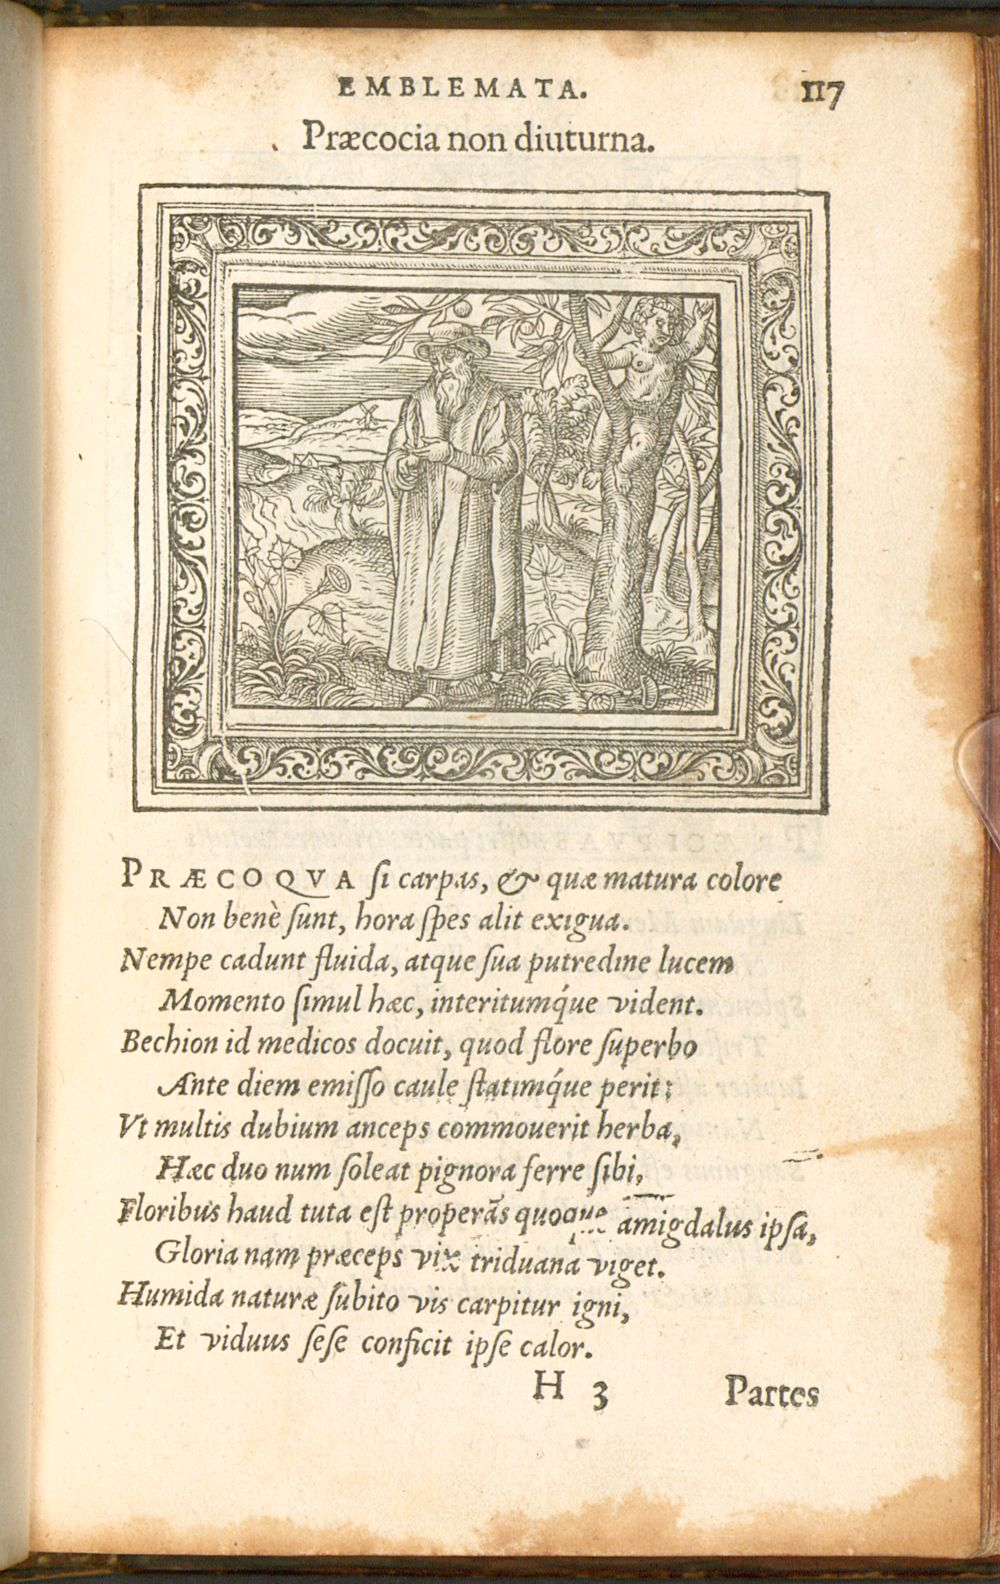 EMBLEMATA. 117
Præcocia non diuturna.
PRÆCOQVA si carpas, & quæ matura colore
Non benè sunt, hora spes alit exigua.
Nempe cadunt fluida, atque sua putredine lucem
Momento simul hæc, interitumq́ue vident.
Bechion id medicos docuit, quod flore superbo
Ante diem emisso caule statimq́ue perit:
Vt multis dubium anceps commouerit herba,
Hæc duo num soleat pignora ferre sibi,
Floribus haud tuta est properãs quoque amigdalus ipsa,
Gloria nam præceps vix triduana viget.
Humida naturæ subito vis carpitur igni,
Et viduus sese conficit ipse calor.
H 3 Partes